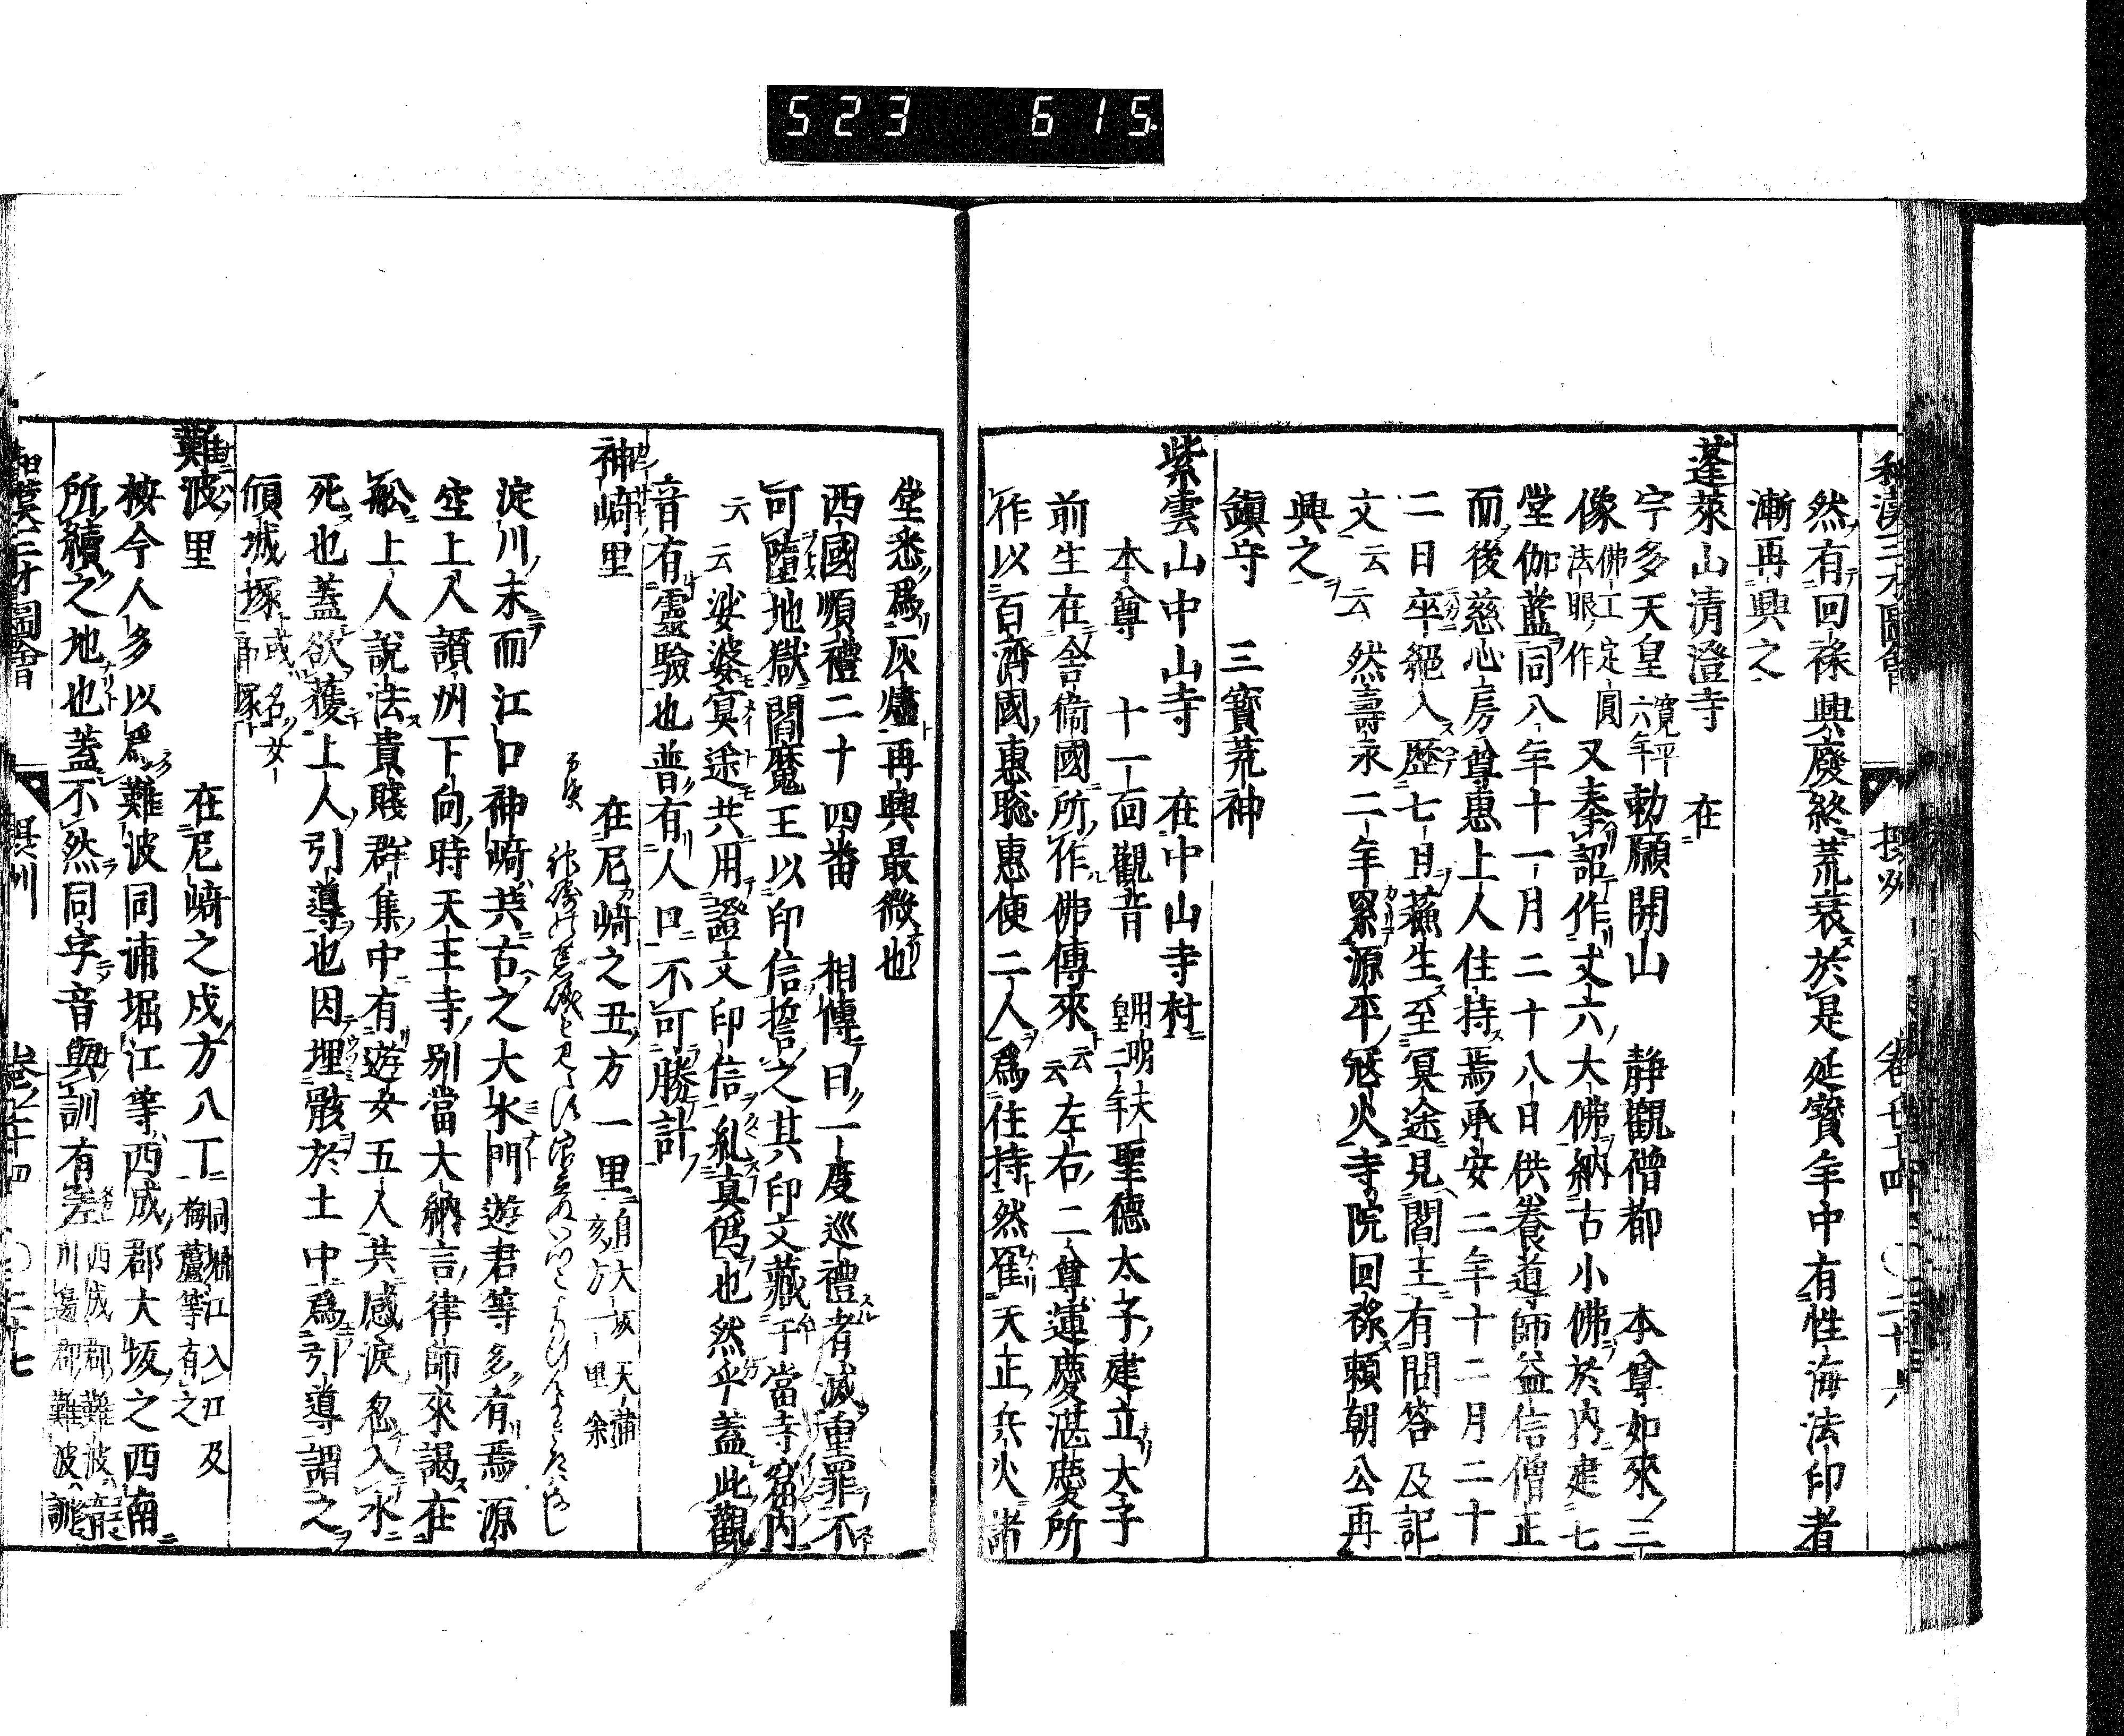 523 615
然有回祿興廢終荒衰於是延寳年中有性海法印者
漸再興之
蓬萊山清澄寺 在
宇多天皇寛平六年勅願開山 静觀僧都 本尊如來三
像佛工定圓法眼作 又奉詔作丈六大佛納古小佛於內建七
堂伽藍同八年十一月二十八日供養導師益信僧正
而後慈心房尊惠上人住持焉承安二年十二月二十
二日卒絕入歷七日蘓生至冥途見閻王有問答及記
文云云 然壽永二年罹源平寇火寺院回祿頼朝公再
興之
鎮守 三寳荒神
紫雲山中山寺 在中山寺村
本尊 十一面觀音 用明天皇二年聖德太子建立太子
前生在舍衞國所作佛傳來云云左右二尊運慶湛慶所
作以百濟國惠聡惠便二人爲住持然罹天正兵火諸
堂悉爲灰燼再興最微也
西國順禮二十四番 相傳曰一度巡禮者滅重罪不
可墮地獄閻魔王以印信誓之其印文藏于當寺窟內
云云娑婆冥途共用證文印信糺真偽也然乎蓋此觀
音有靈驗也普有人口不可勝計
神崎里 在尼崎之丑方一里自大坂天滿亥方一里余
淀川末而江口神崎共古之大水門遊君等多有焉 源
空上人讃州下向時天王寺別當大納言律師來謁在
舩上人說法貴賤群集中有遊女五人共感淚忽入水
死也蓋欲獲上人引導也因埋骸於土中爲引導謂之
傾城塚或名女郎塚
難波里 在尼崎之戌方八丁同堀江入江及梅蘆等有之
按今人多以爲難波同浦堀江等西成郡大坂之西南
所續之地也蓋不然同字音與訓有差西成郡難波音川邊郡難波訓
攝州 卷七十四 〇二十七